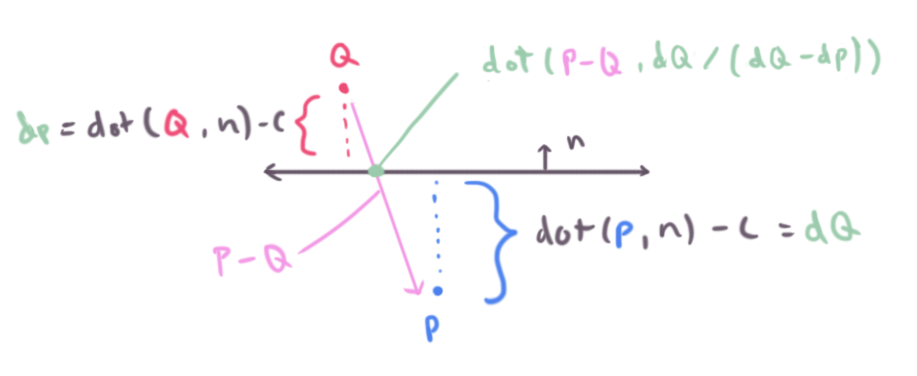 Q
dot(P-Q, dQ/(dQ-dp))
dp = dot(Q, n)-c
n
P-Q
dot(P, n) - c = dQ
P